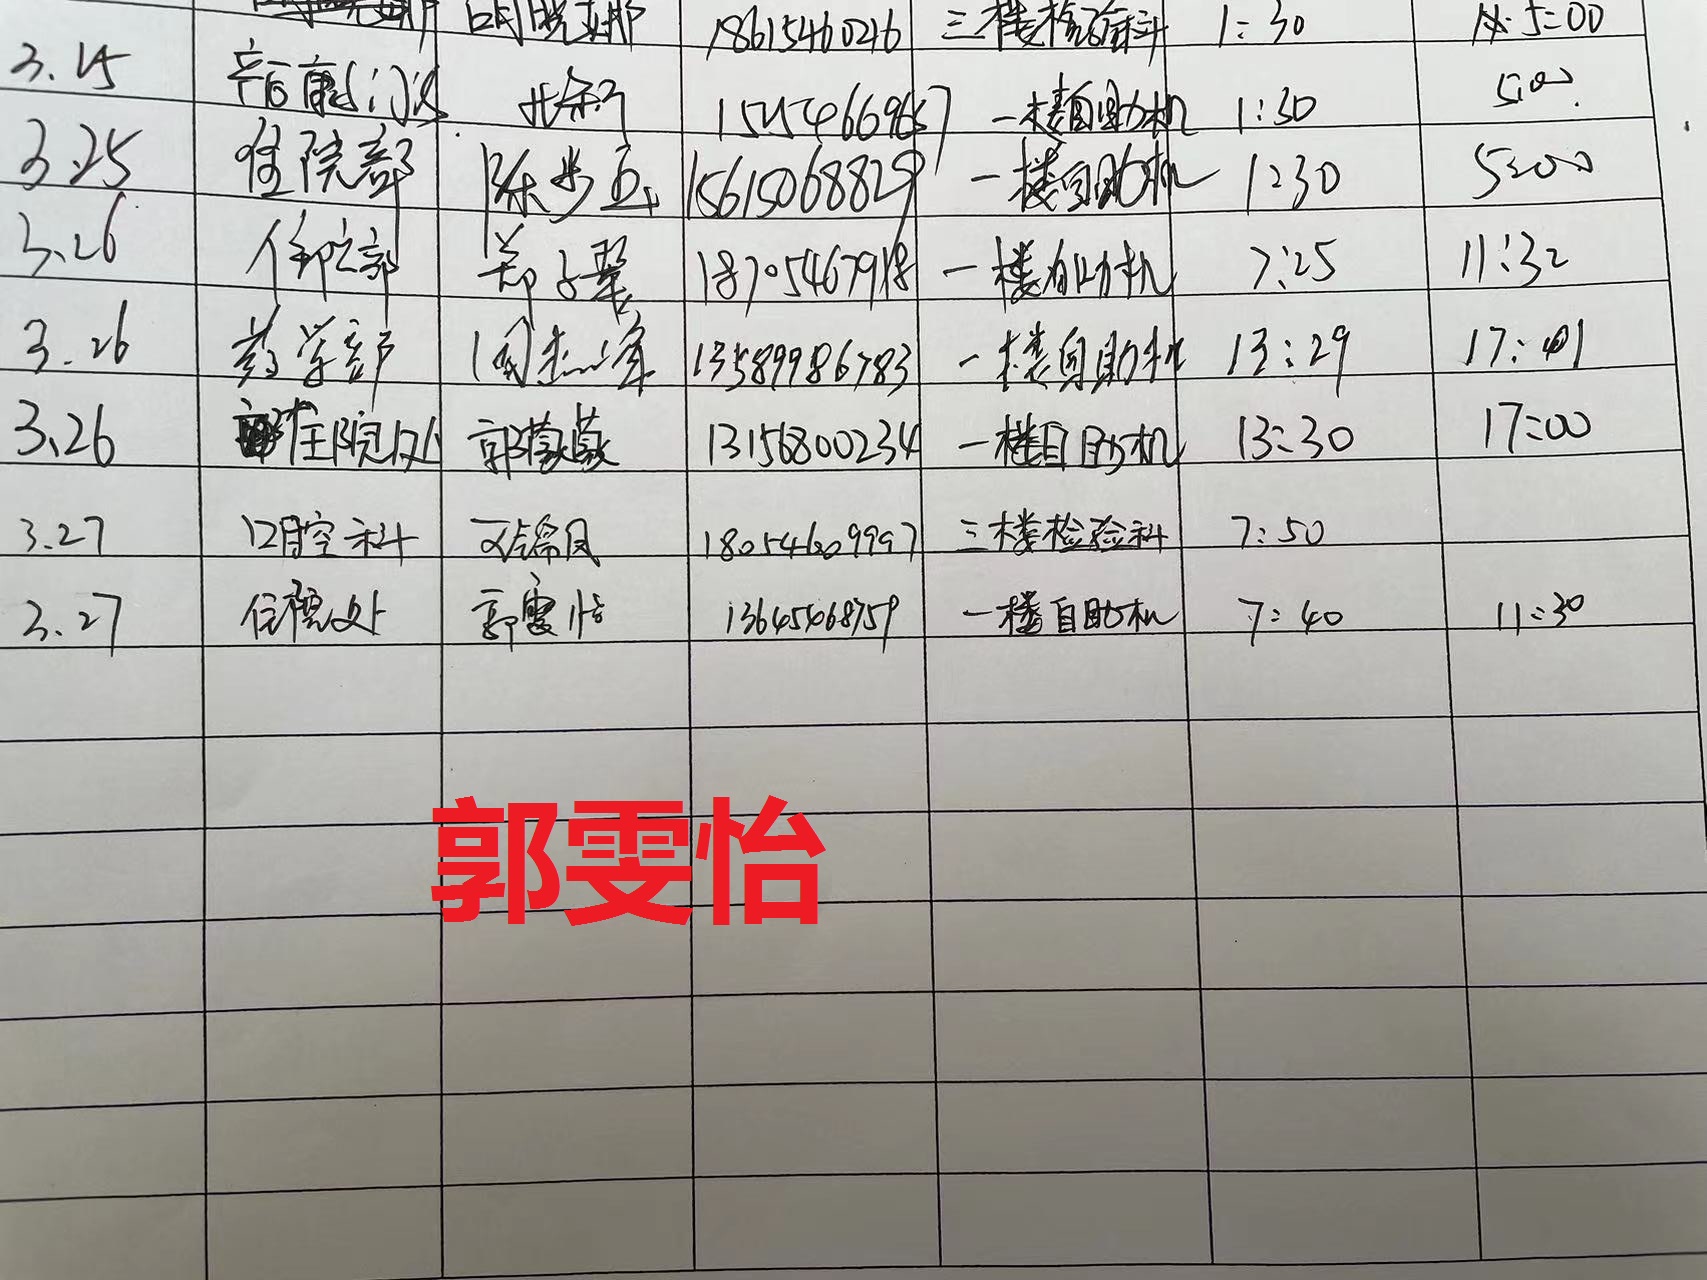 18615460246 三楼检验科 1:30 5:00
3.25 1:30 5:00
一楼自助机
3.25 住院部 陈步 15615068829 一楼自助机 1:30 5:00
3.26 郑 18705467918 一楼自助机 7:25 11:32
3.26 药学部 周 13589986783 一楼自助机 13:29 17:01
3.26 住院处 郭薇薇 13156800234 一楼自助机 13:30 17:00
3.27 口腔科 18054609997 三楼检验科 7:50
3.27 住院处 郭雯怡 13645468759 一楼自助机 7:40 11:30
郭雯怡